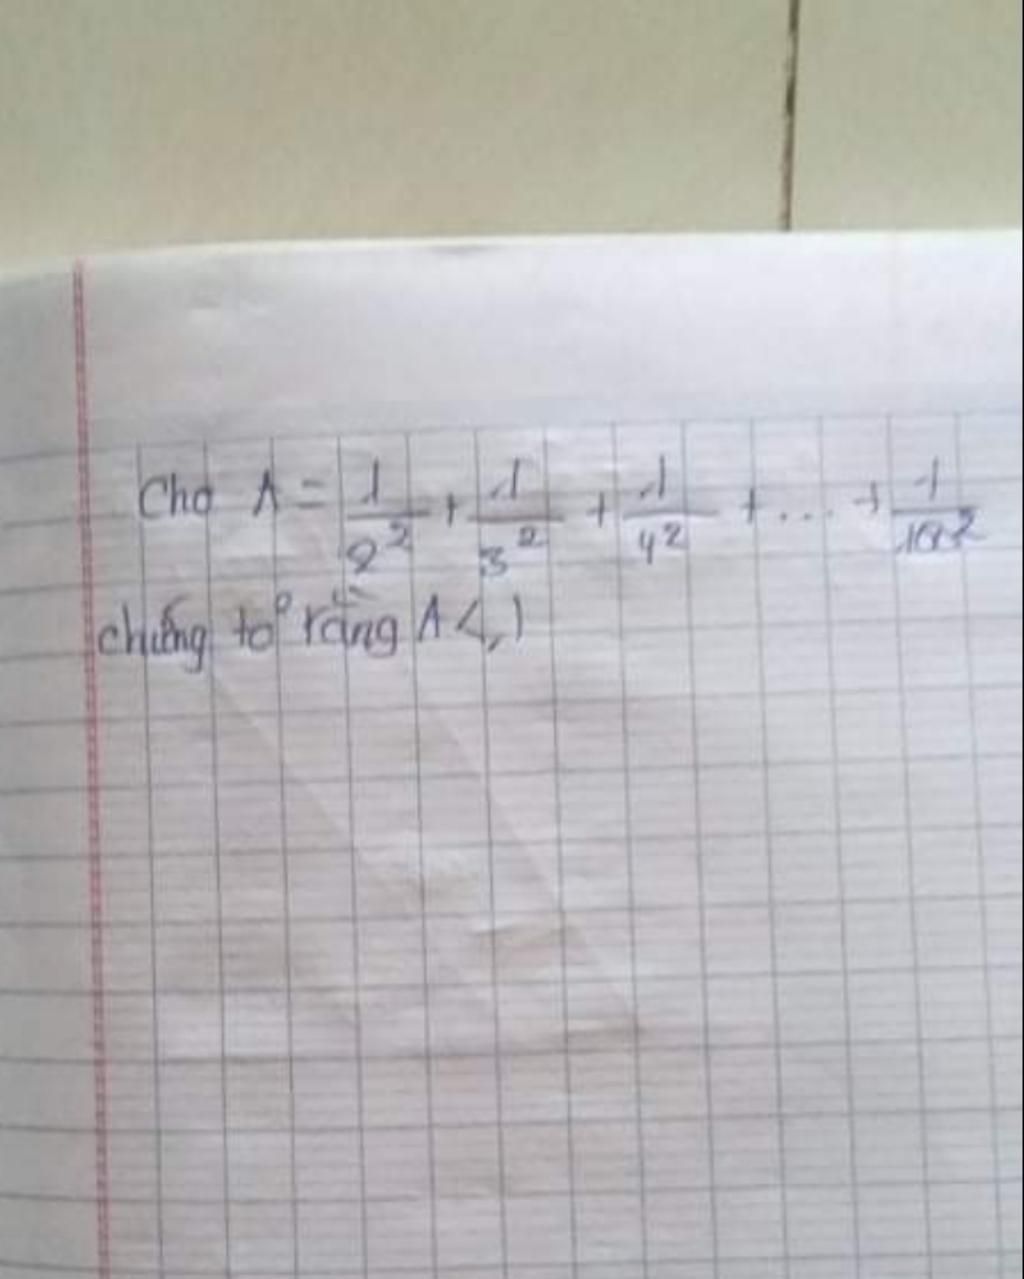 Cho A = 1/2² + 1/3² + 1/4² + ... + 1/10²
chứng tỏ rằng A < 1